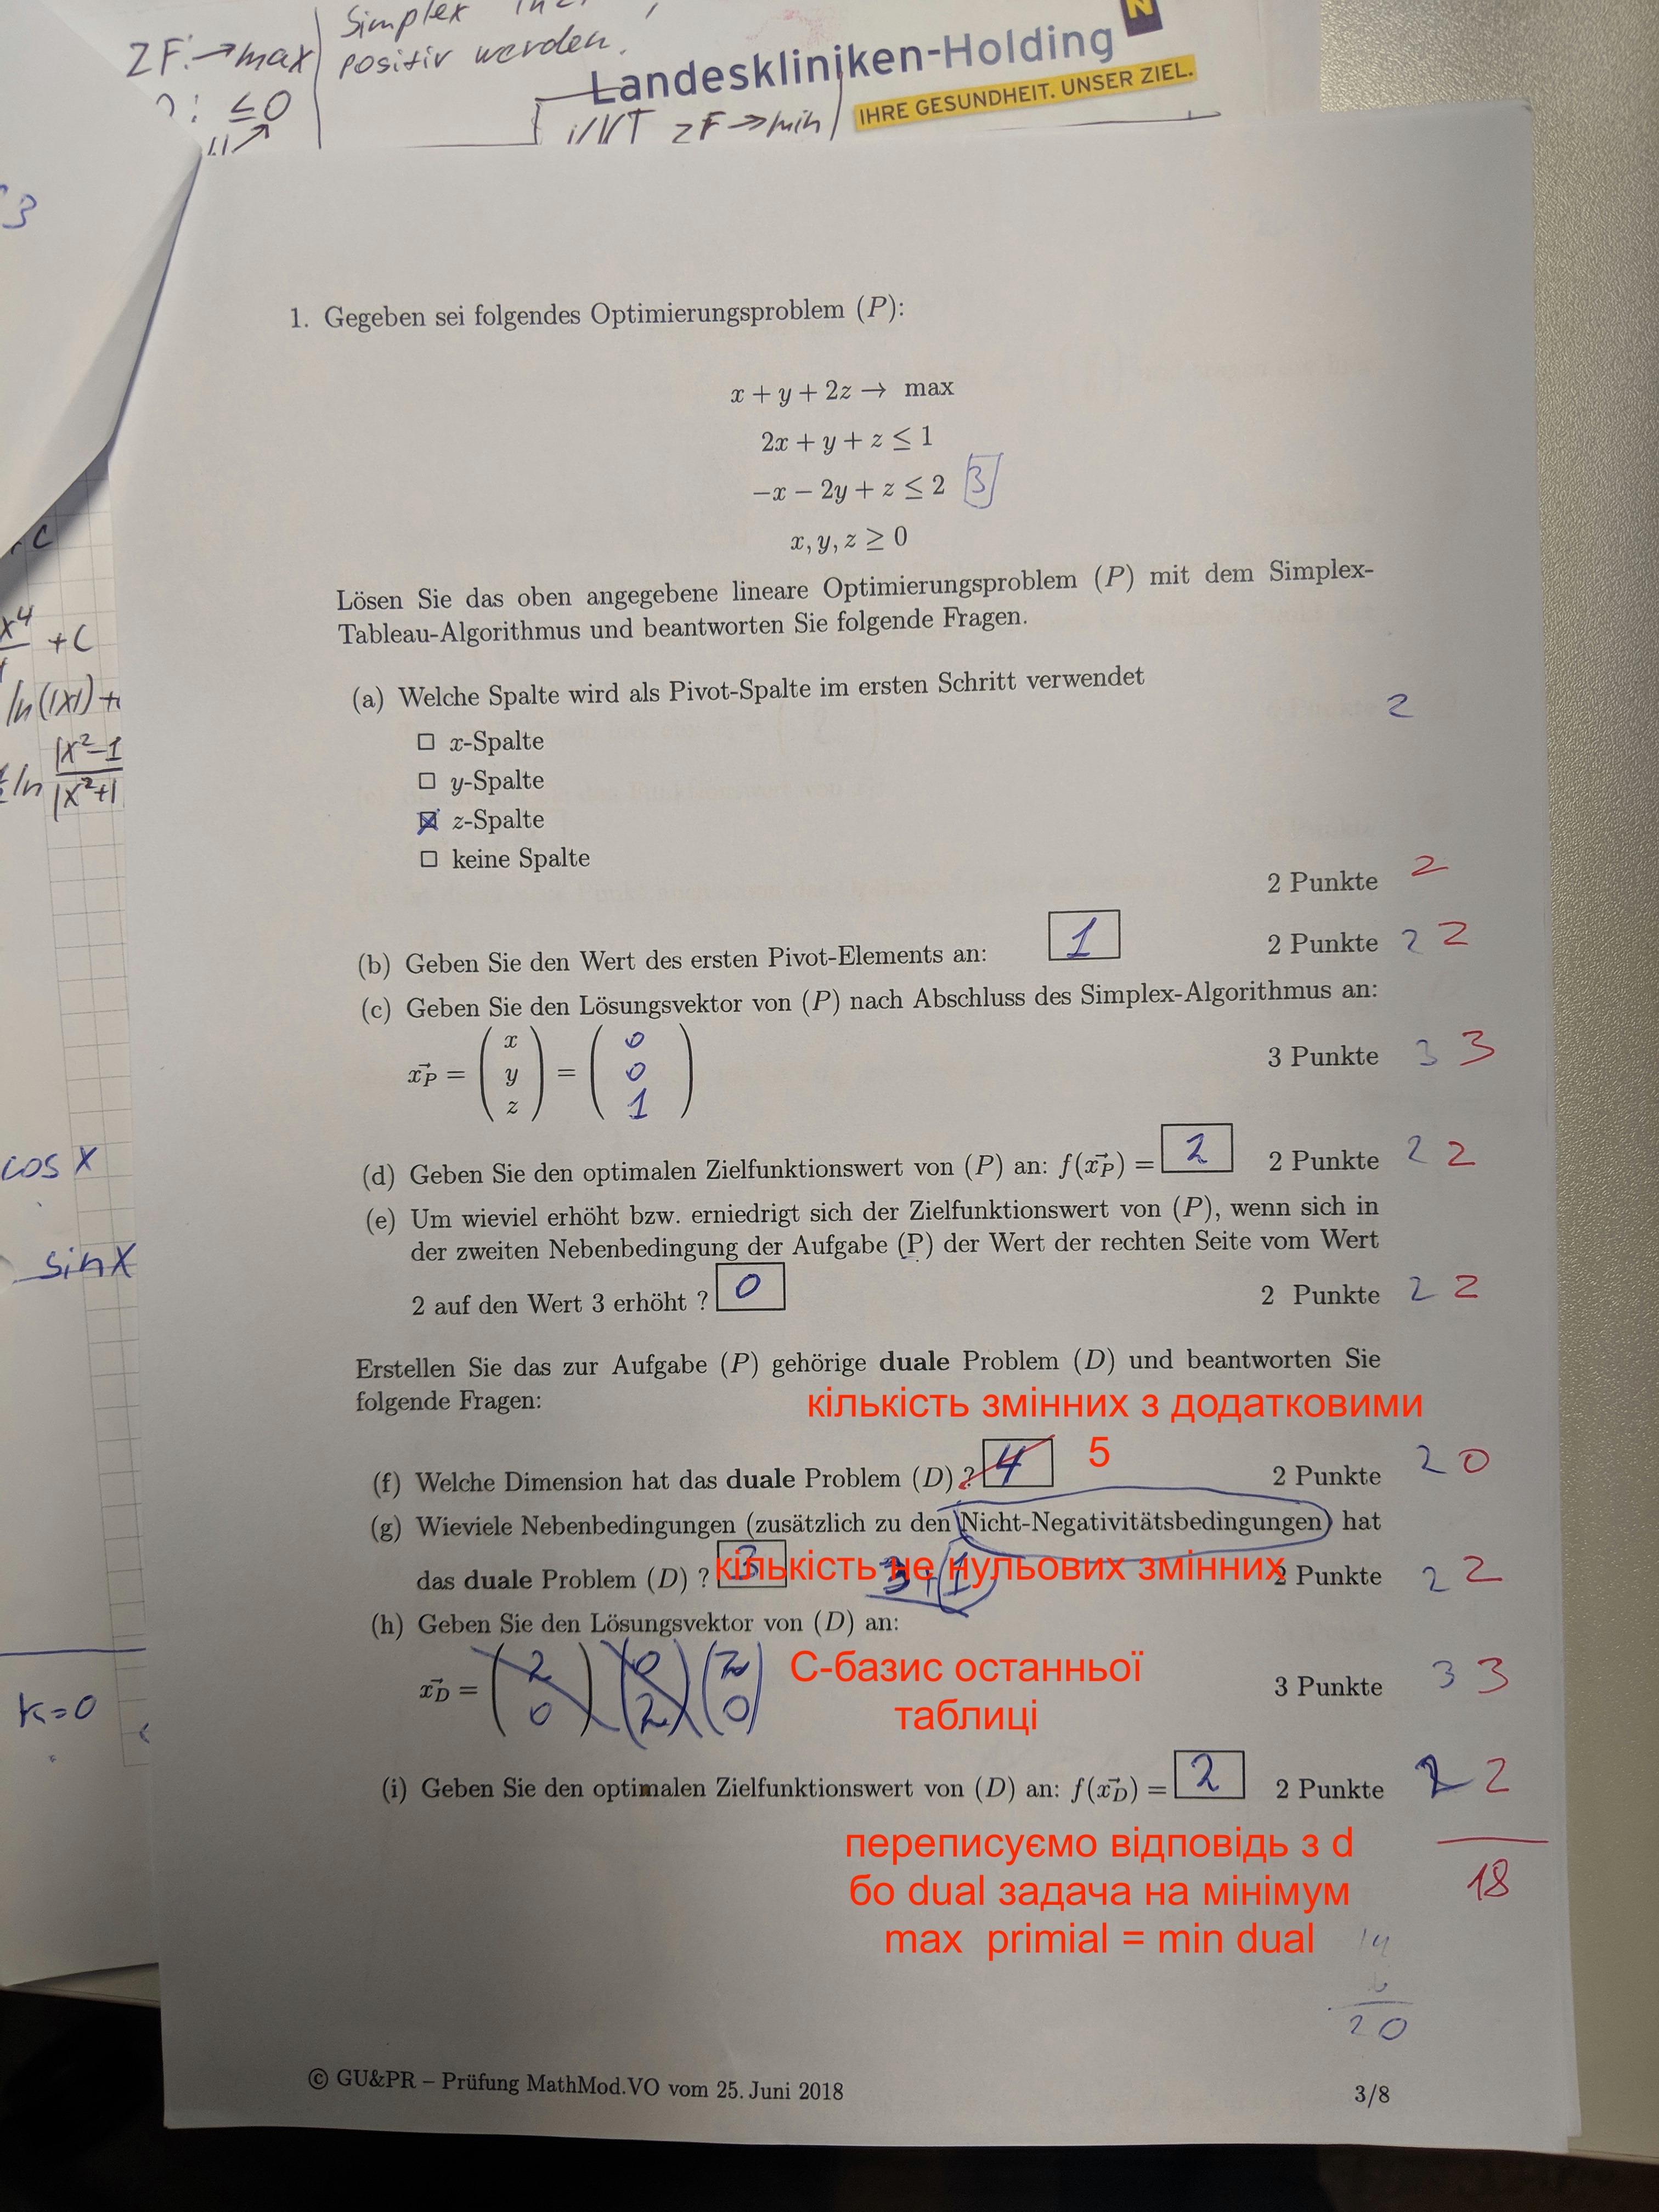 Simplex
ZF: → max
positiv werden.
≤0
Landeskliniken-Holding
IHRE GESUNDHEIT. UNSER ZIEL.
ZF → min
3
1. Gegeben sei folgendes Optimierungsproblem (P):
x + y + 2z → max
2x + y + z ≤ 1
−x − 2y + z ≤ 2 3
x, y, z ≥ 0
Lösen Sie das oben angegebene lineare Optimierungsproblem (P) mit dem Simplex-
Tableau-Algorithmus und beantworten Sie folgende Fragen.
+C
x⁴
+C
ln(|x|)+
ln |x²−1
|x²+1
(a) Welche Spalte wird als Pivot-Spalte im ersten Schritt verwendet 2
☐ x-Spalte
☐ y-Spalte
☒ z-Spalte
☐ keine Spalte
2 Punkte 2
(b) Geben Sie den Wert des ersten Pivot-Elements an: 1 2 Punkte 2 2
(c) Geben Sie den Lösungsvektor von (P) nach Abschluss des Simplex-Algorithmus an:
x⃗P = (x y z) = (0 0 1) 3 Punkte 3 3
cos x
(d) Geben Sie den optimalen Zielfunktionswert von (P) an: f(x⃗P) = 2 2 Punkte 2 2
(e) Um wieviel erhöht bzw. erniedrigt sich der Zielfunktionswert von (P), wenn sich in
der zweiten Nebenbedingung der Aufgabe (P) der Wert der rechten Seite vom Wert
2 auf den Wert 3 erhöht ? 0 2 Punkte 2 2
sin x
Erstellen Sie das zur Aufgabe (P) gehörige duale Problem (D) und beantworten Sie
folgende Fragen:
кількість змінних з додатковими
5
(f) Welche Dimension hat das duale Problem (D) ? 4 2 Punkte 2 0
(g) Wieviele Nebenbedingungen (zusätzlich zu den Nicht-Negativitätsbedingungen) hat
das duale Problem (D) ? 3 3+1 2 Punkte 2 2
кількість не нульових змінних
(h) Geben Sie den Lösungsvektor von (D) an:
x⃗D = (2 0) (0 2) (2 0) 3 Punkte 3 3
С-базис останньої
таблиці
k=0
(i) Geben Sie den optimalen Zielfunktionswert von (D) an: f(x⃗D) = 2 2 Punkte 2 2
переписуємо відповідь з d
бо dual задача на мінімум
max primial = min dual
18
14
20
© GU&PR – Prüfung MathMod.VO vom 25. Juni 2018
3/8